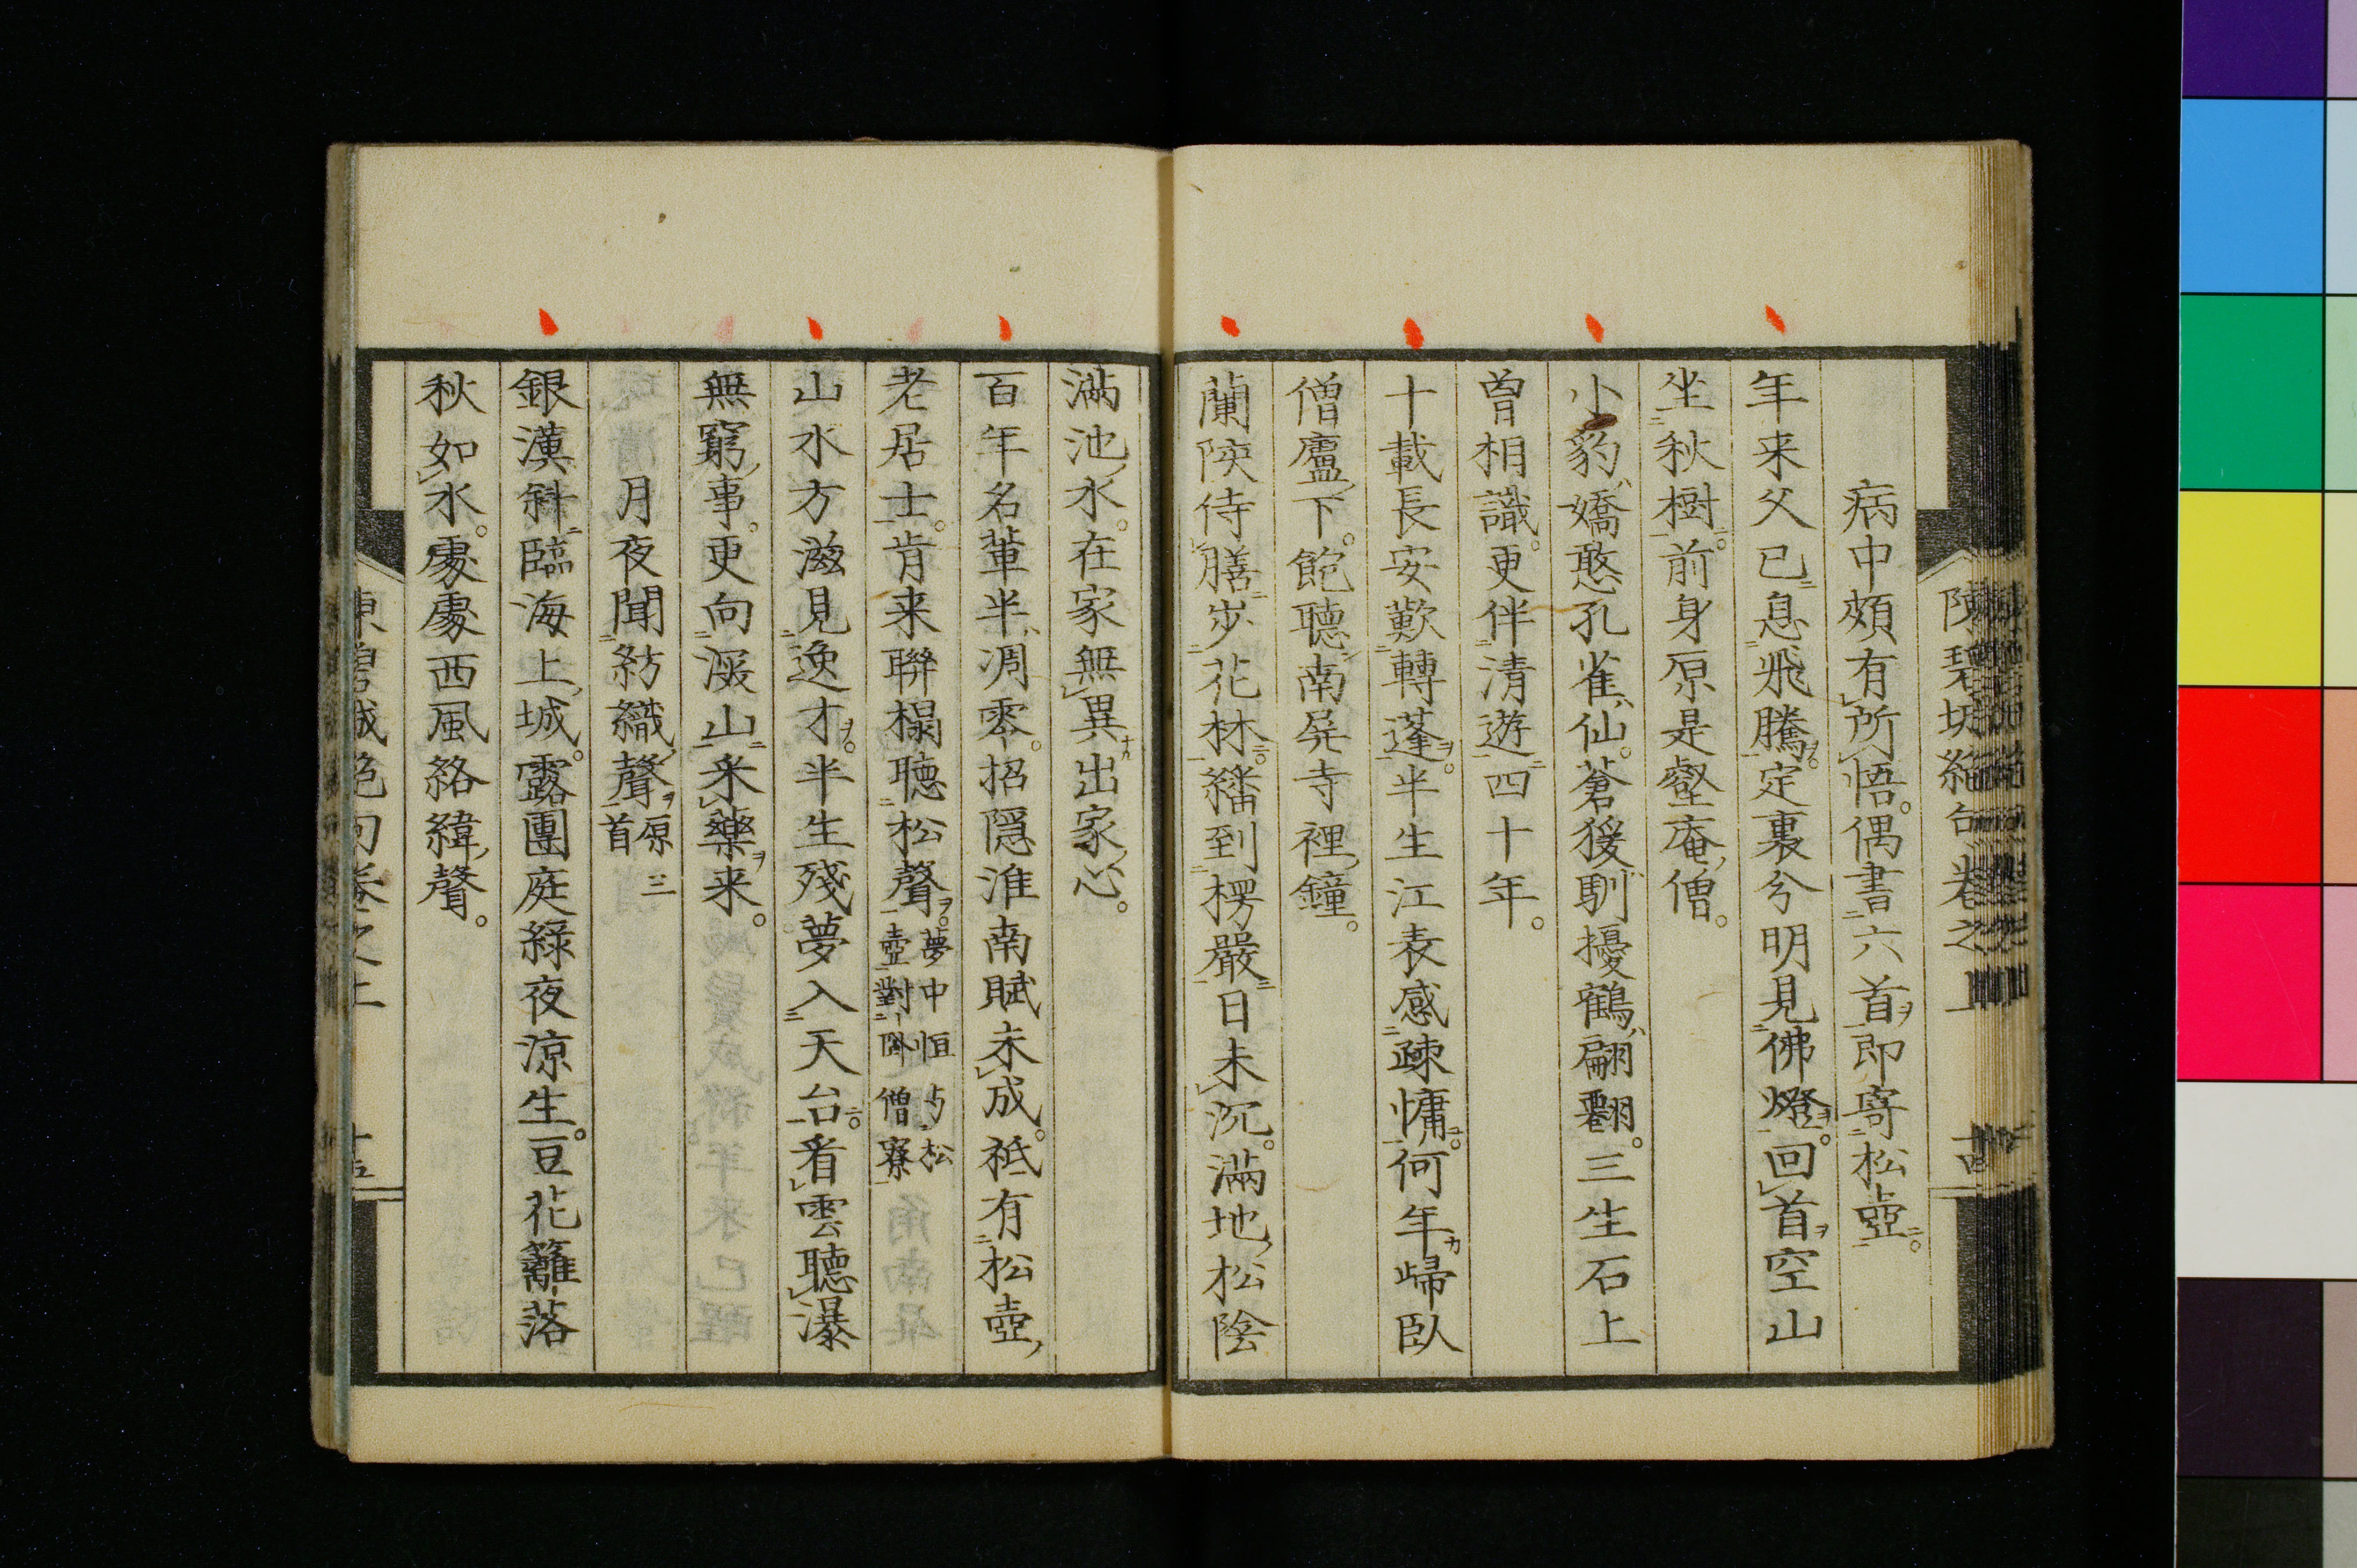 陳碧城絶句卷之上
十四
病中頗有所悟。偶書六首即寄松壺。
年来久已息飛騰。定裏分明見佛燈。回首空山
坐秋樹。前身原是壑庵僧。
小豹嬌憨孔雀仙。蒼猨馴擾鶴翩翻。三生石上
曾相識。更伴清遊四十年。
十載長安歎轉蓬。半生江表感疎慵。何年歸臥
僧廬下。飽聽南屏寺裡鐘。
蘭陔侍膳步花林。繙到楞嚴日未沉。滿地松陰
滿池水。在家無異出家心。
百年名輩半凋零。招隱淮南賦未成。祗有松壺
老居士。肯来聯榻聽松聲。夢中恒與松
壺對牀僧寮
山水方滋見逸才。半生殘夢入天台。看雲聽瀑
無窮事。更向深山采藥来。
月夜聞紡織聲原三
首
銀漢斜臨海上城。露團庭綠夜涼生。豆花籬落
秋如水。處處西風絡緯聲。
陳碧城絶句卷之上
十五